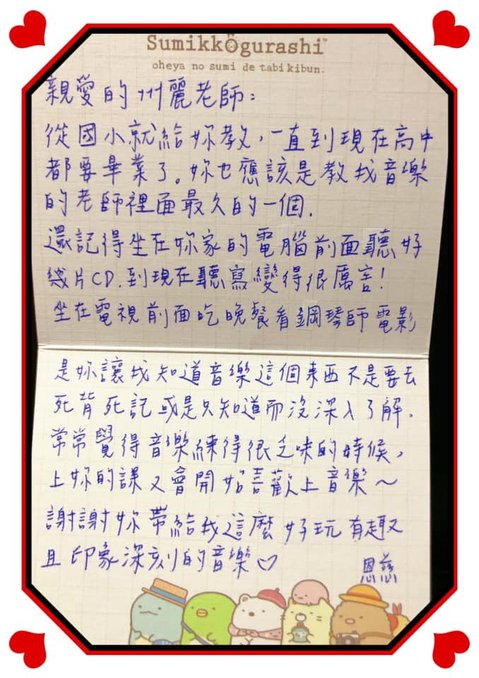 Sumikkogurashi™
oheya no sumi de tabikibun.
親愛的卅麗老師：
從國小就給妳教，一直到現在高中
都要畢業了。妳也應該是教我音樂
的老師裡面最久的一個.
還記得坐在妳家的電腦前面聽好
幾片CD.到現在聽寫變得很厲害!
坐在電視前面吃晚餐看鋼琴師電影
是妳讓我知道音樂這個東西不是要去
死背死記或是只知道而沒深入了解.
常常覺得音樂練得很乏味的時候，
上妳的課又會開始喜歡上音樂～
謝謝妳帶給我這麼好玩有趣
且印象深刻的音樂♡
恩慈